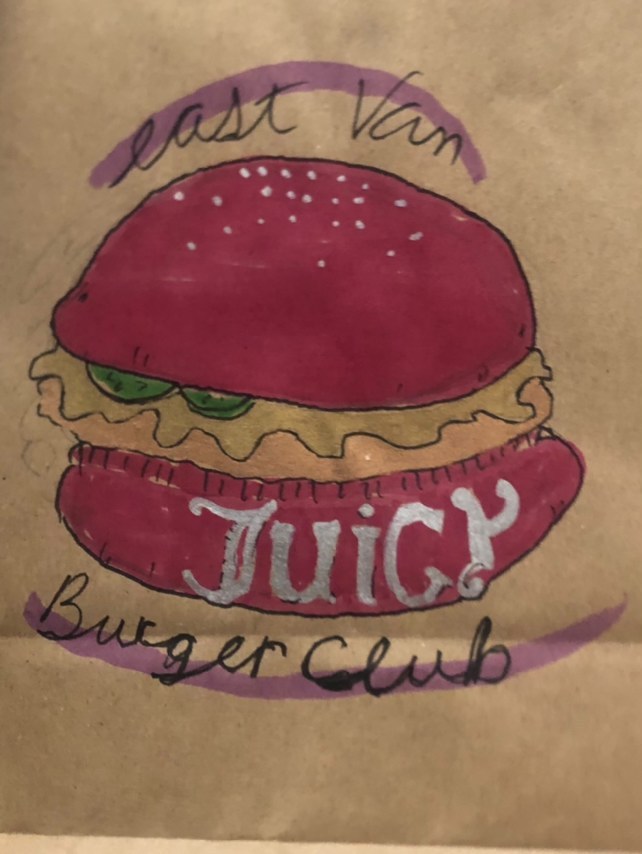 east Van
JUiCY
Burger Club